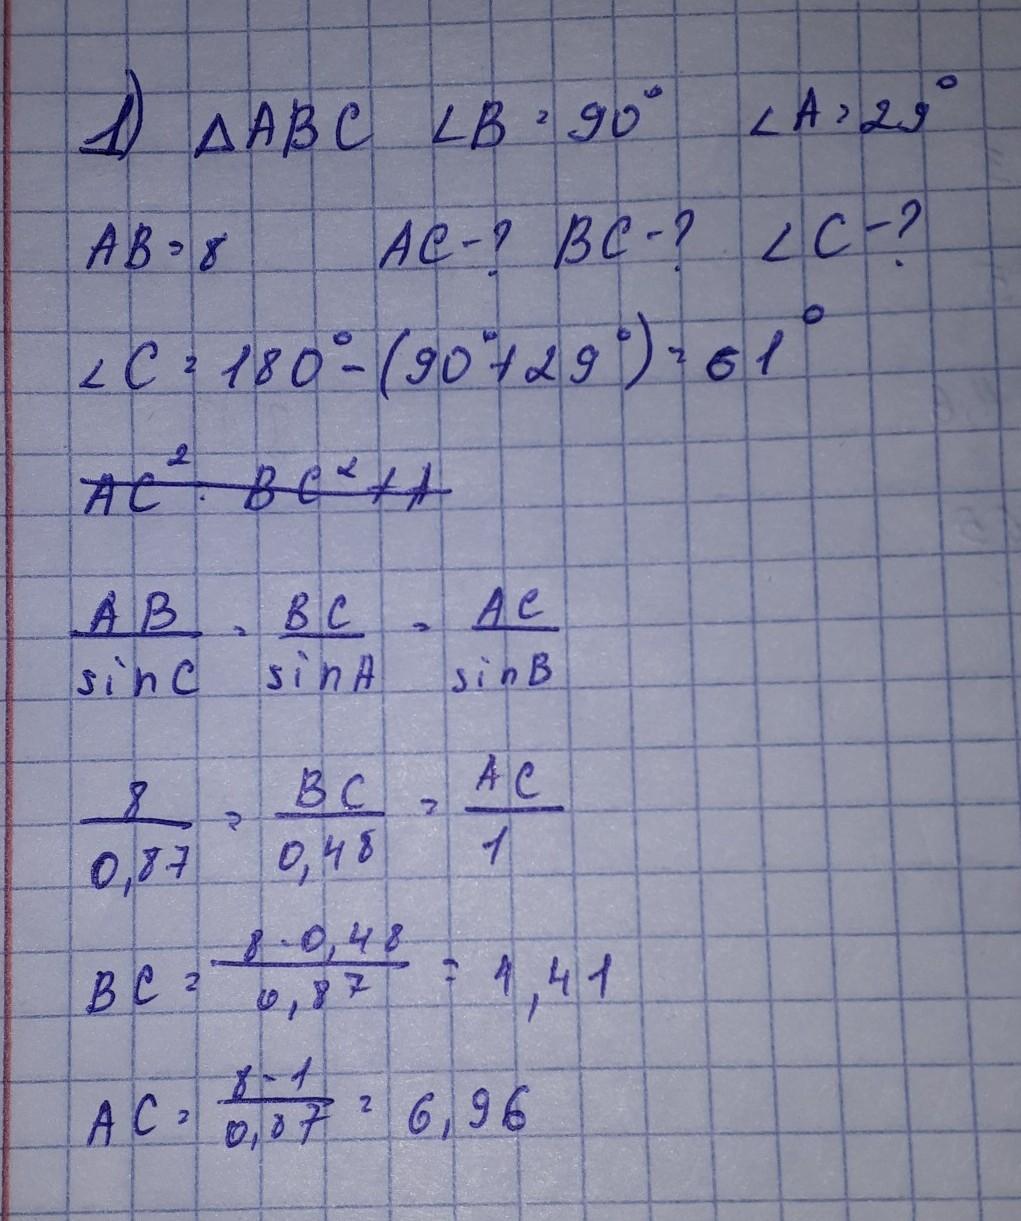 1) ΔABC ∠B = 90° ∠A = 29°
AB = 8 AC - ? BC - ? ∠C - ?
∠C = 180° - (90° + 29°) = 61°
AC² = BC² + A
AB/sinC = BC/sinA = AC/sinB
8/0,87 = BC/0,48 = AC/1
BC = 8·0,48/0,87 = 4,41
AC = 8·1/0,87 = 6,96